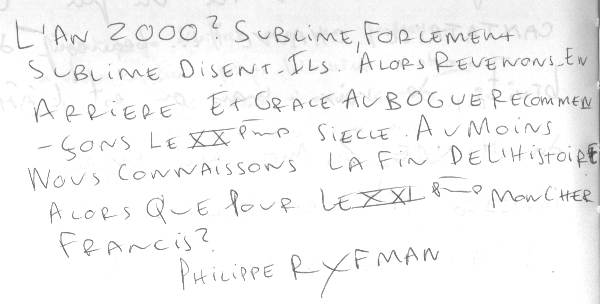 L'AN 2000? SUBLIME, FORCEMENT
SUBLIME DISENT-ILS. ALORS REVENONS-EN
ARRIERE ET GRACE AU BOGUE RECOMMEN
-ÇONS LE XXème SIECLE. AU MOINS
NOUS CONNAISSONS LA FIN DE L'HISTOIRE
ALORS QUE POUR LE XXIème MON CHER
FRANCIS?
PHILIPPE RYFMAN